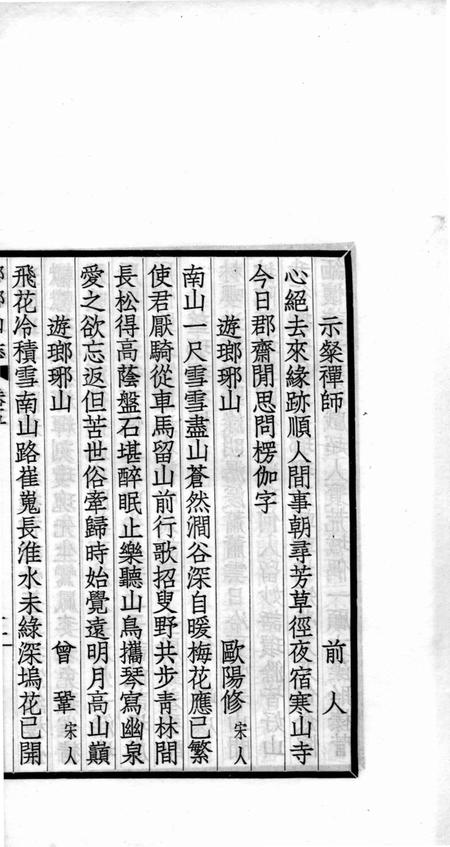 示粲禪師 前人
心絕去來緣跡順人間事朝尋芳草徑夜宿寒山寺
今日郡齋閒思問楞伽字
遊瑯琊山 歐陽修 宋人
南山一尺雪雪盡山蒼然澗谷深自暖梅花應已繁
使君厭騎從車馬留山前行歌招叟野共步青林間
長松得高蔭盤石堪醉眠止樂聽山鳥攜琴寫幽泉
愛之欲忘返但苦世俗牽歸時始覺遠明月高山巔
遊瑯琊山 曾鞏 宋人
飛花冷積雪南山路崔嵬長淮水未綠深塢花已開